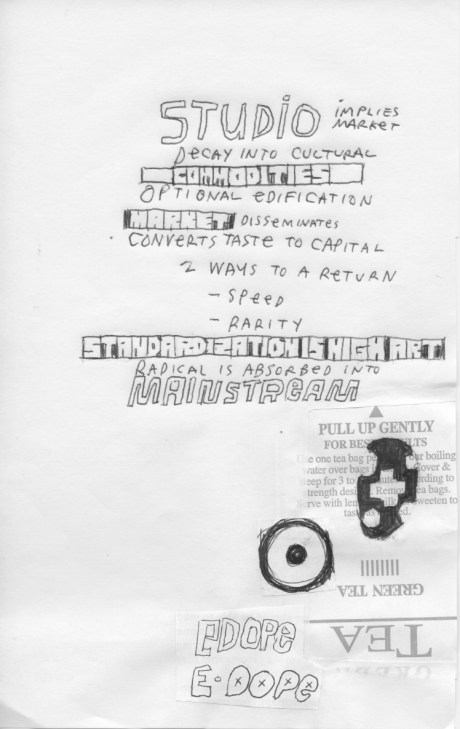 STUDIO IMPLIES MARKET
DECAY INTO CULTURAL
COMMODITIES
OPTIONAL EDIFICATION
MARKET DISSEMINATES
CONVERTS TASTE TO CAPITAL
2 WAYS TO A RETURN
- SPEED
- RARITY
STANDARDIZATION IS HIGH ART
RADICAL IS ABSORBED INTO
MAINSTREAM
PULL UP GENTLY
FOR
one tea bag boiling
water over bags &
for 3 to to
strength tea bags.
with to
GREEN TEA
TEA
EDOPE
E·DOPE